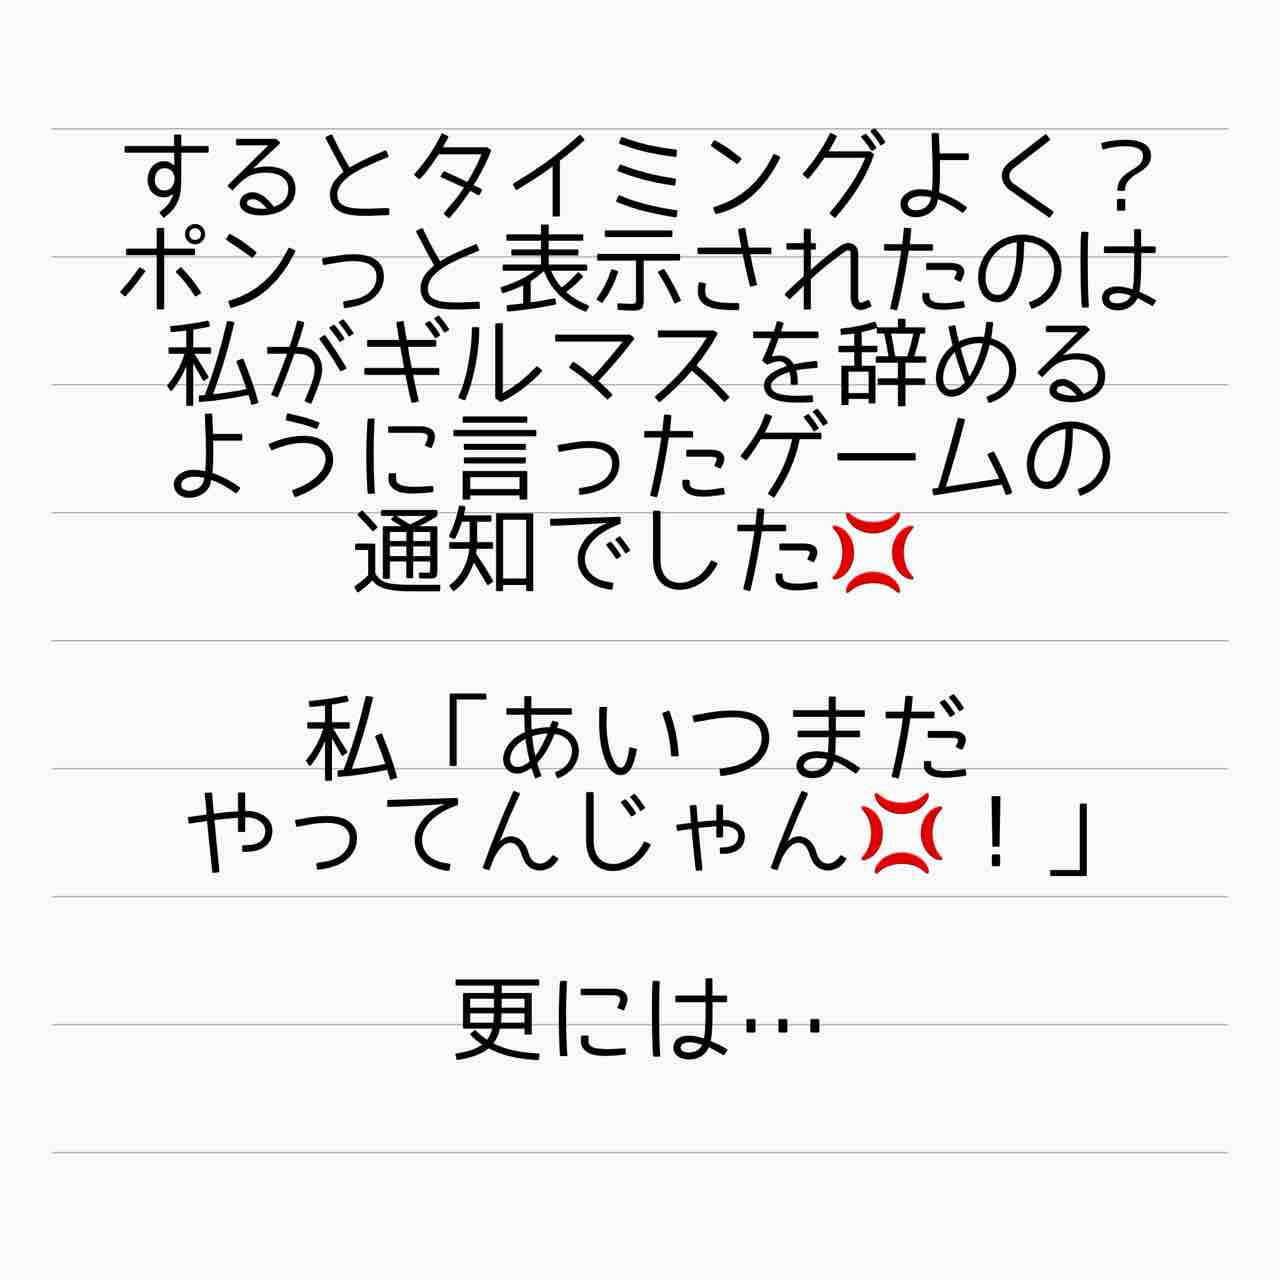 するとタイミングよく？
ポンっと表示されたのは
私がギルマスを辞める
ように言ったゲームの
通知でした💢
私「あいつまだ
やってんじゃん💢！」
更には…